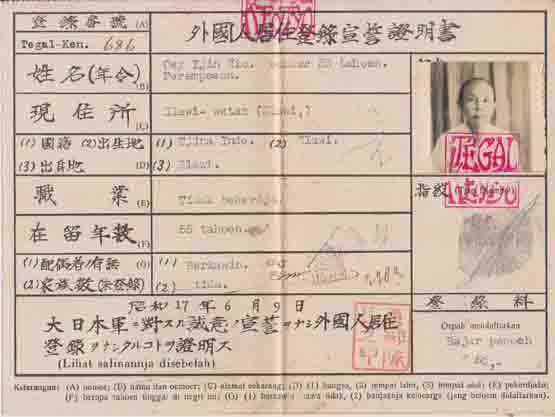 登録番號 (A)
Tegal-Ken. 686
外國人居住登錄宣誓證明書
姓名(年令) (B)
Oey Tjin Tio. oemoer 55 tahoen.
Perempoean.
現住所 (C)
Slawi- wetan (Slawi,)
(1) 國籍 (2) 出生地
(3) 出身地 (D)
(1) Tjina Indo. (2) Slawi.
(3) Slawi.
職業 (E)
Tidak bekerdja.
在留年數 (F)
55 tahoen.
(1) 配偶者ノ有無 (G)
(2) 家族數(未登錄)
(1)
(2) tida.
TEGAL
指紋
昭和 17年 6月 9日
大日本軍ニ對スル誠意ノ宣誓ヲナシ外國人居住
登錄ヲナシタルコトヲ證明ス
(Liliat salinannja disebelah)
登錄料
Ongkost mendaftarkan
Bajar penoeh
Keterangan: (A) nomor; (B) nama dan oemoer; (C) alamat sekarang; (D) (1) bangsa, (2) tempat lahir, (3) tempat asal; (E) pekerdjaän;
(F) berapa tahoen tinggal di negri ini; (G) (1) berkawin atau tidak, (2) banjaknja keloearga (jang beloem didaftarkan).